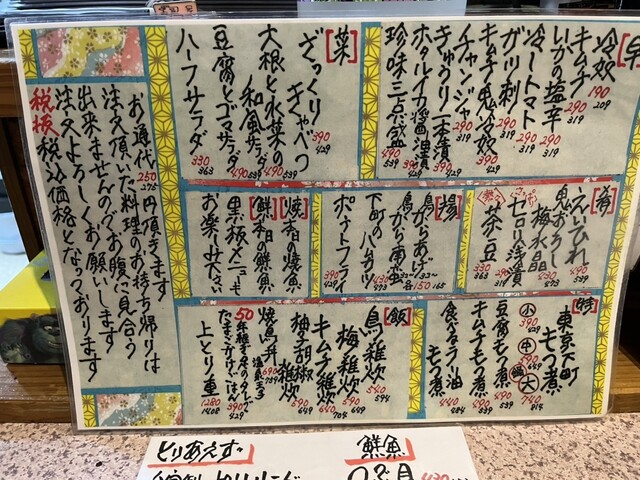 冷奴 190 209
キムチ 290 319
いかの塩辛 290 319
冷しトマト 290 319
ガツ刺 290 319
キムチ冷奴 390 429
チャンジャ 290 319
きゅうり一本漬 290 319
ホタルイカ醤油漬 390 429
珍味三点盛 490 539
[菜]
ざっくりきゃべつ 390 429
大根と水菜の和風サラダ 490 539
豆腐とゴマサラダ 490 539
ハーフサラダ 330 363
[肴]
えいひれ 490 539
鬼おろし
梅水晶 430 473
セロリ浅漬 290 319
茶豆 330 363
[揚]
鳥からあげ
鳥から南蛮 各150 165
下町のハムカツ
ポテトフライ 390 429
[焼]
本日の焼魚
[鮮]
本日の鮮魚
黒板メニューを
お楽しみ下さい
[特]
東京下町もつ煮
小 390 429
中 590 649
大 740 814
豆腐もつ煮 490 539
キムチもつ煮 490 539
食べるラー油もつ煮 440 484
[飯]
鳥雑炊 540 594
梅雑炊 590 649
キムチ雑炊 640 704
柚子胡椒雑炊 590 649
焼鳥丼 温泉玉子 690 759
50年継ぎ足しのタレで
たまごかけごはん 390 429
上とり重 1280 1408
お通代 250 275 円頂きます
注文頂いた料理のお持ち帰りは
出来ませんのでお腹に見合う
注文よろしくお願いします
税抜 税込価格となっております
とりあえず
鮮魚
つぶ貝